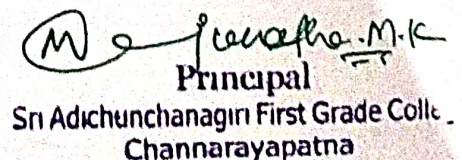 Manjunatha.M.K
Principal
Sri Adichunchanagiri First Grade Colle
Channarayapatna